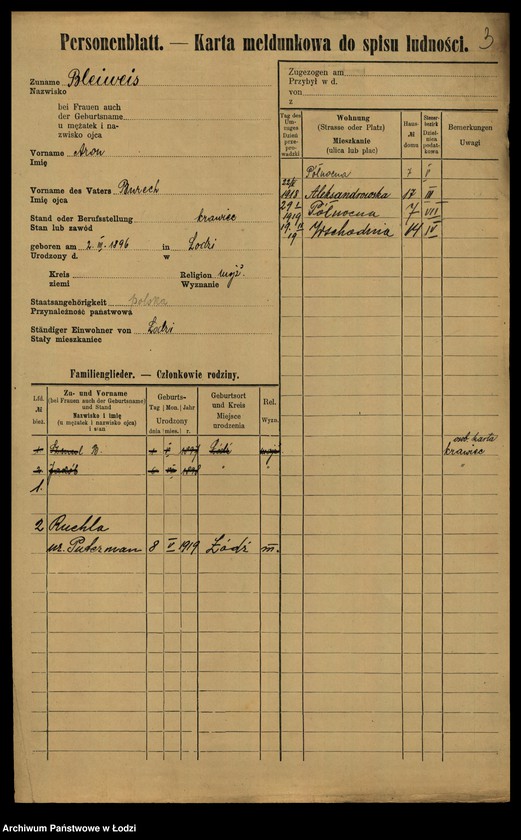 Personenblatt. — Karta meldunkowa do spisu ludności. 3
Zuname Bleiweis
Nazwisko
bei Frauen auch
der Geburtsname
u mężatek i na-
zwisko ojca
Vorname Aron
Imię
Vorname des Vaters
Imię ojca
Stand oder Berufsstellung krawiec
Stan lub zawód
geboren am 2. III. 1896 in Łodzi
Urodzony d. w
Kreis Religion mojż.
ziemi Wyznanie
Staatsangehörigkeit polska
Przynależność państwowa
Ständiger Einwohner von Łodzi
Stały mieszkaniec
Zugezogen am
Przybył w d.
von
z
Tag des Um-zuges Dzień prze-prowadzki
Wohnung (Strasse oder Platz) Mieszkanie (ulica lub plac)
Haus- № domu
Steuer-bezirk Dziel-nica podat-kowa
Bemerkungen Uwagi
Północna 7 V
1918 Aleksandrowska 17 III
1919 Północna 7 VII
19 Wschodnia 64 IV
Familienglieder. — Członkowie rodziny.
Lfd. № bież.
Zu- und Vorname (bei Frauen auch der Geburtsname) und Stand Nazwisko i imię (u mężatek i nazwisko ojca) i stan
Geburts- Tag Mon. Jahr Urodzony dnia mies. r.
Geburtsort und Kreis Miejsce urodzenia
Rel. Wyzn.
1 M. Łódź mojż. krawiec
2 Jakób " "
1.
2 Ruchla
ur. Puterman 8 V 1919 Łódź m.
Archiwum Państwowe w Łodzi